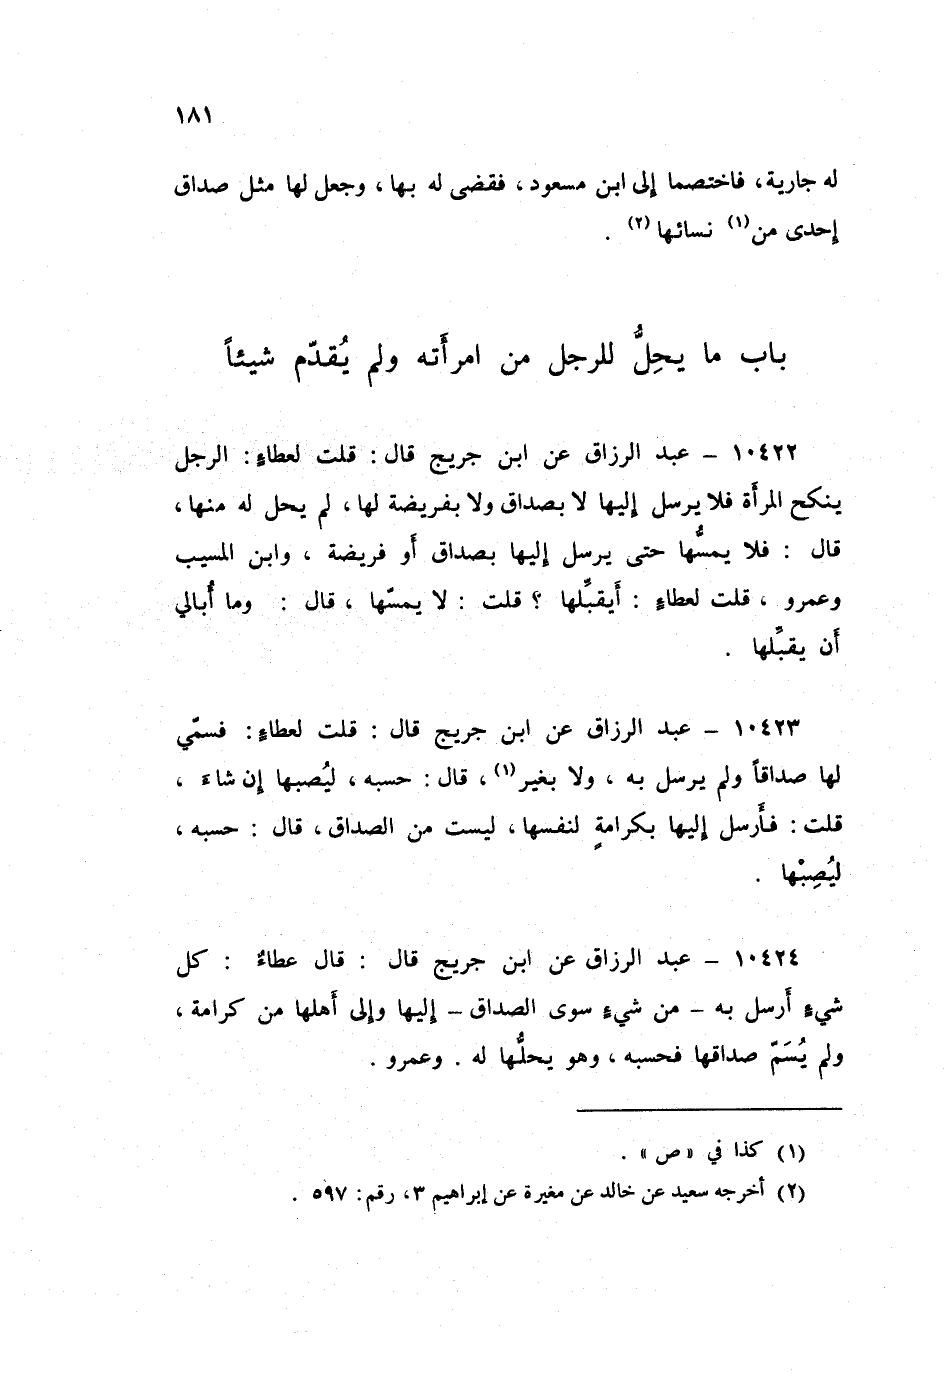 ١٨١
له جارية، فاختصما إلى ابن مسعود ، فقضى له بها ، وجعل لها مثل صداق
إحدى من(١) نسائها(٢) .
باب ما يحِلُّ للرجل من امرأَته ولم يُقدّم شيئاً
١٠٤٢٢ – عبد الرزاق عن ابن جريج قال : قلت لعطاءٍ : الرجل
ينكح المرأَة فلا يرسل إليها لا بصداق ولا بفريضة لها ، لم يحل له منها ،
قال : فلا يمسُّها حتى يرسل إليها بصداق أَو فريضة ، وابن المسيب
وعمرو ، قلت لعطاءٍ : أَيقبِّلها ؟ قلت : لا يمسّها ، قال : وما أُبالي
أَن يقبِّلها .
١٠٤٢٣ – عبد الرزاق عن ابن جريج قال : قلت لعطاءٍ : فسمّي
لها صداقاً ولم يرسل به ، ولا بغير(١) ، قال : حسبه ، ليُصبها إن شاءَ ،
قلت : فأَرسل إليها بكرامةٍ لنفسها ، ليست من الصداق ، قال : حسبه ،
ليُصِبْها .
١٠٤٢٤ – عبد الرزاق عن ابن جريج قال : قال عطاءٌ : كل
شيءٍ أَرسل به – من شيءٍ سوى الصداق – إليها وإلى أَهلها من كرامة ،
ولم يُسَمّ صداقها فحسبه ، وهو يحلُّها له . وعمرو .
(١) كذا في « ص » .
(٢) أخرجه سعيد عن خالد عن مغيرة عن إبراهيم ٣، رقم: ٥٩٧ .